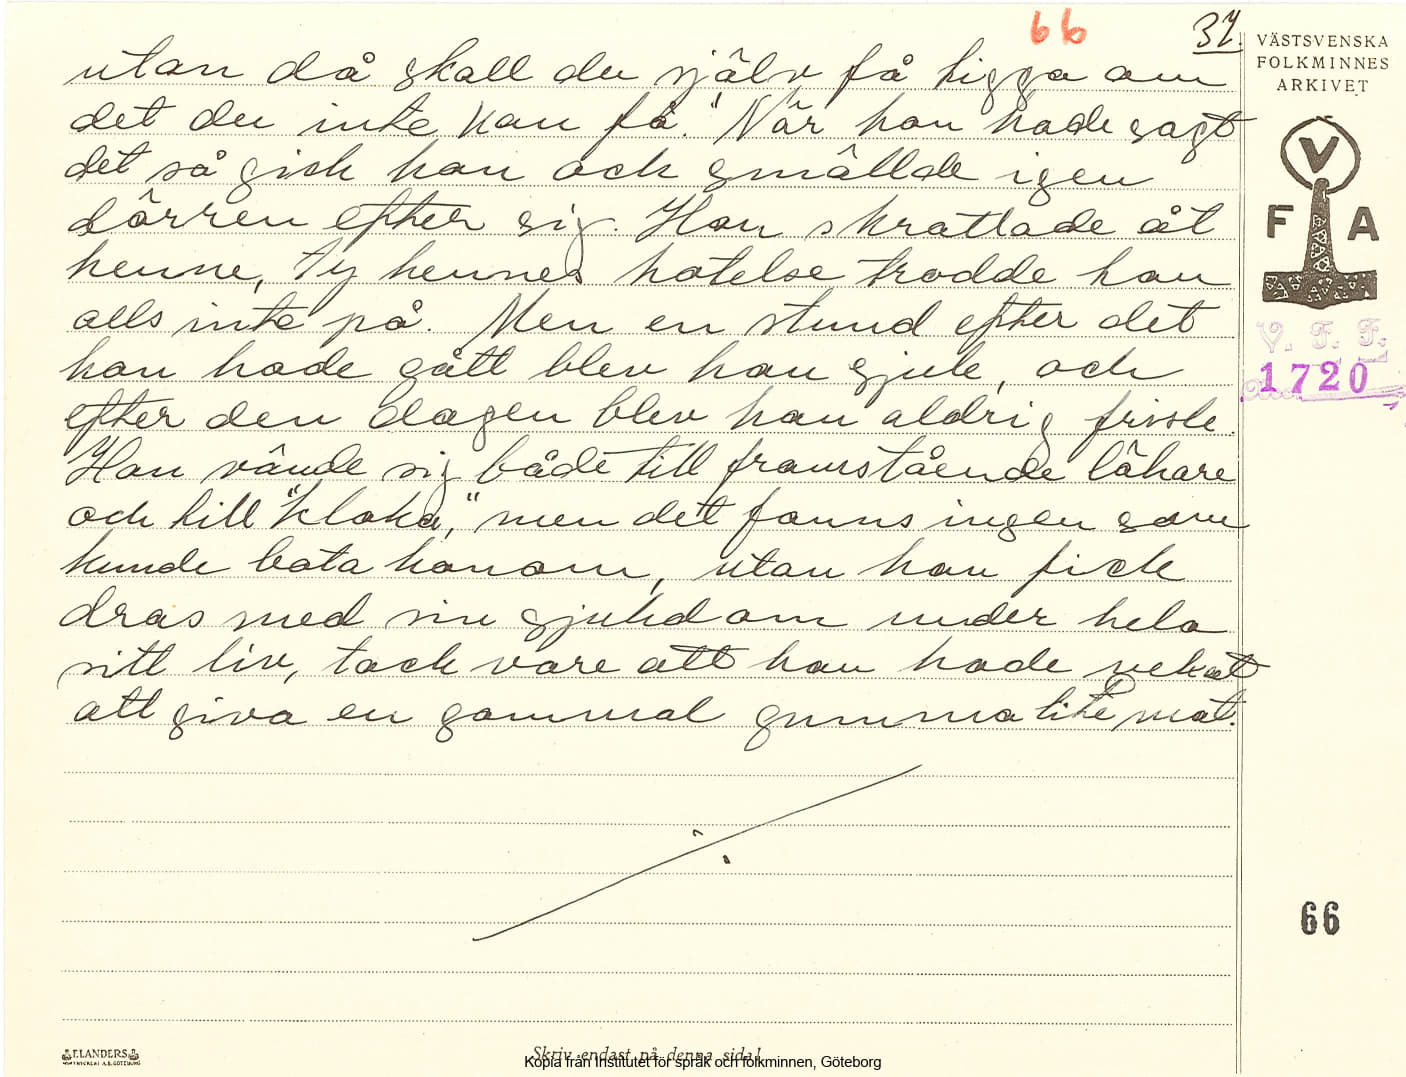 66
37.
VÄSTSVENSKA
FOLKMINNES
ARKIVET
utan då skall du själv få tigga om
det du inte kan få." När han hade sagt
det så gick han och smällde igen
dörren efter sig. Han skrattade åt
henne, ty hennes hotelse trodde han
alls inte på. Men en stund efter det
han hade gått blev han sjuk, och
efter den dagen blev han aldrig frisk.
Han vände sig både till framstående läkare
och till "kloka," men det fanns ingen som
kunde bota honom, utan han fick
dras med sin sjukdom under hela
sitt liv, tack vare att han hade nekat
att giva en gammal gumma lite mat.
V
F A
V. F. F.
1720
66
ELANDERS
Skriv endast på denna sida!
Kopia från Institutet för språk och folkminnen, Göteborg